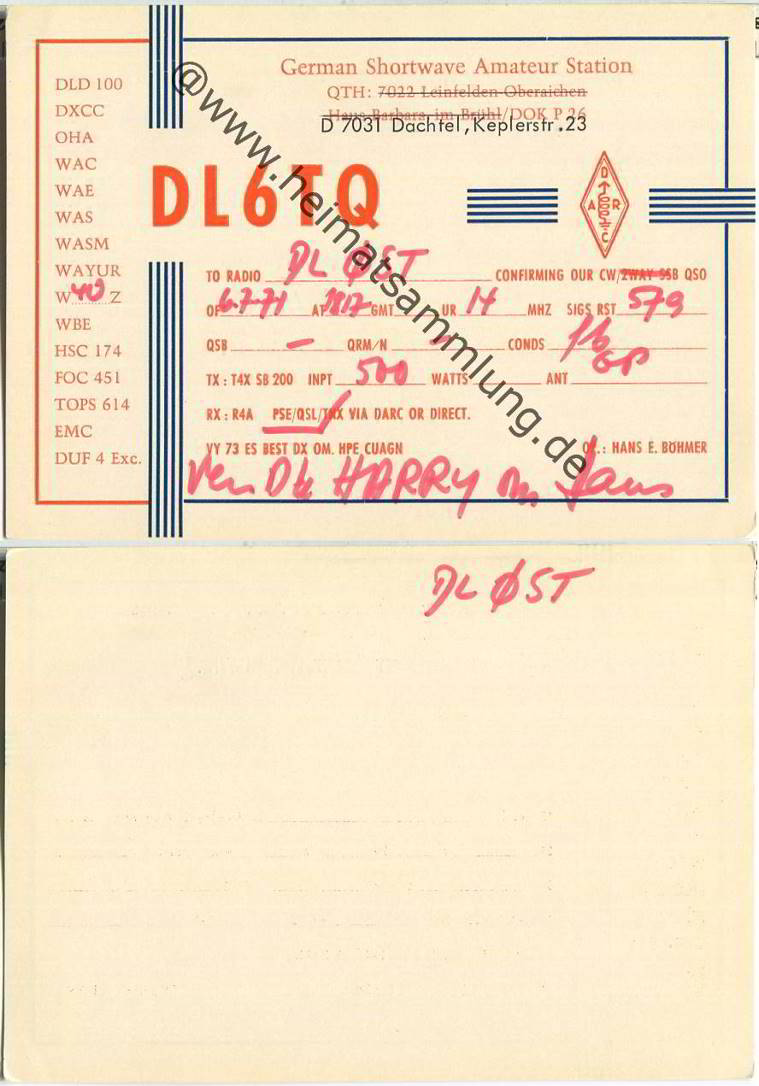 German Shortwave Amateur Station
QTH: 7022 Leinfelden-Oberaichen
Haus Barbara, im Brühl/DOK P 26
D 7031 Dachtel, Keplerstr. 23
DLD 100
DXCC
OHA
WAC
WAE
WAS
WASM
WAYUR
W 40 Z
WBE
HSC 174
FOC 451
TOPS 614
EMC
DUF 4 Exc.
DL6TQ
D
A R
C
TO RADIO DL ØST CONFIRMING OUR CW/2WAY SSB QSO
OF 6.7.71 AT 1817 GMT UR 14 MHZ SIGS RST 579
QSB – QRM/N – CONDS fb
TX: T4X SB 200 INPT 500 WATTS ANT GP
RX: R4A PSE/QSL/TNX VIA DARC OR DIRECT.
VY 73 ES BEST DX OM. HPE CUAGN OP.: HANS E. BÖHMER
HARRY Hans
@www.heimatsammlung.de
DL ØST